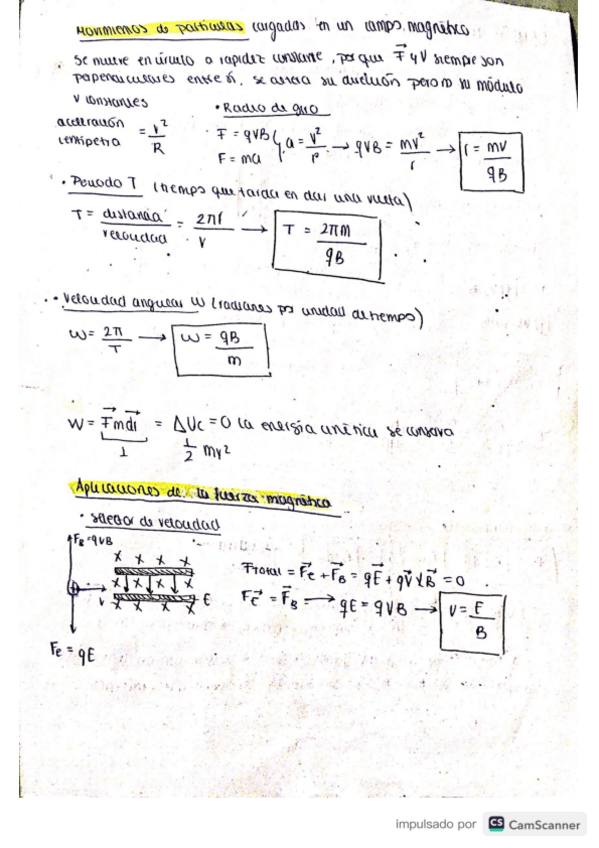 Movimientos de partículas cargadas en un campo magnético
Se mueve en círculo a rapidez constante, porque F⃗ y V siempre son
perpendiculares entre sí. Se altera su dirección pero no su módulo
v constantes
• Radio de giro
aceleración centípetra = v²/R
F = qVB
F = ma
a = v²/r → qVB = mv²/r → r = mv/qB
• Periodo T (tiempo que tarda en dar una vuelta)
T = distancia/velocidad = 2πr/v → T = 2πm/qB
• Velocidad angular W (radianes por unidad de tiempo)
W = 2π/T → W = qB/m
W = F⃗m dr⃗ = ΔUc = 0 la energía cinética se conserva
⊥
1/2 mv²
Aplicaciones de la fuerza magnética
• Selector de velocidad
F_B = qVB
x x x x
x x x x
v x x x x E
Fe = qE
Ftotal = F⃗e + F⃗B = qE⃗ + qV⃗ x B⃗ = 0
F⃗E = F⃗B → qE = qVB → V = E/B
impulsado por CS CamScanner